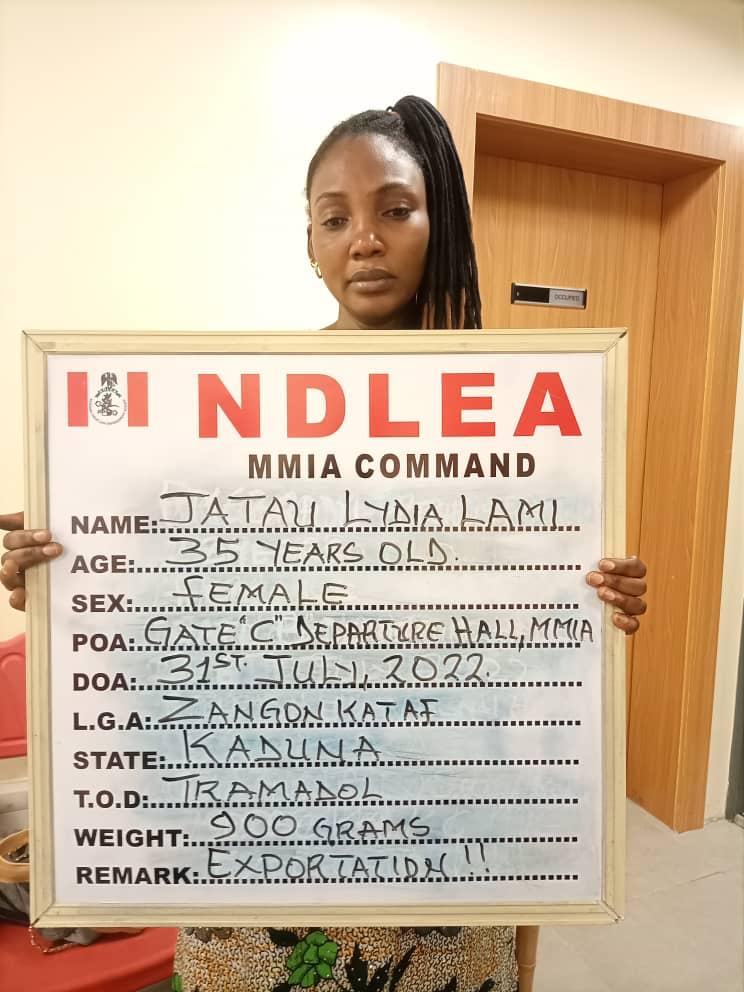 NDLEA
MMIA COMMAND
NAME: JATAU LYDIA LAMI
AGE: 35 YEARS OLD.
SEX: FEMALE
POA: GATE "C" DEPARTURE HALL, MMIA
DOA: 31ST. JULY, 2022.
L.G.A: ZANGON KATAF
STATE: KADUNA
T.O.D: TRAMADOL
WEIGHT: 900 GRAMS
REMARK: EXPORTATION !!
OCCUPIED